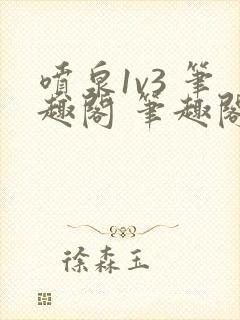 噴泉1v3 筆
趣閣 筆趣閣
徐森玉